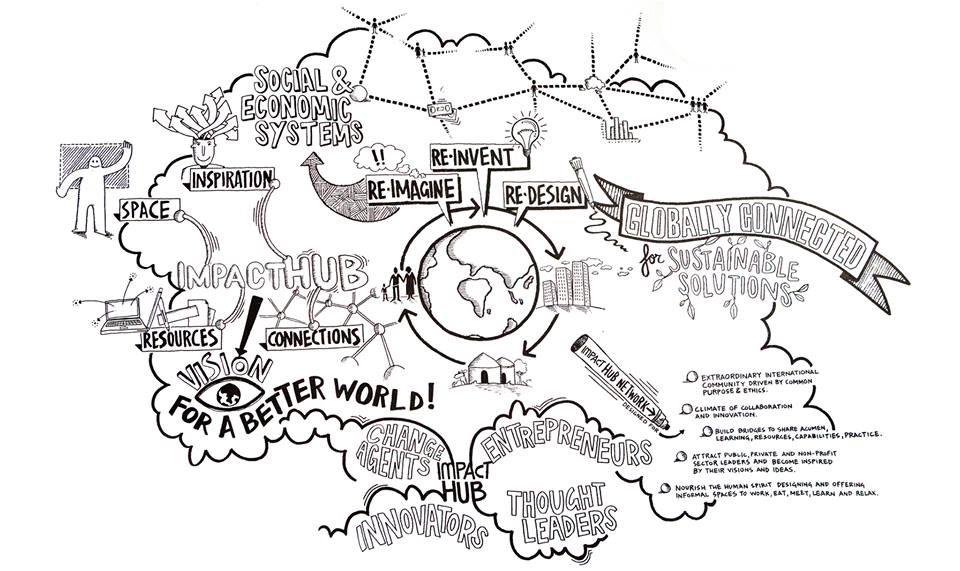 SOCIAL &
ECONOMIC
SYSTEMS
!!
RE-INVENT
RE-IMAGINE
RE-DESIGN
INSPIRATION
SPACE
GLOBALLY CONNECTED
for SUSTAINABLE
SOLUTIONS
IMPACTHUB
RESOURCES
CONNECTIONS
VISION
FOR A BETTER WORLD!
IMPACT HUB NETWORK
DESIGNED FOR
EXTRAORDINARY INTERNATIONAL
COMMUNITY DRIVEN BY COMMON
PURPOSE & ETHICS.
CLIMATE OF COLLABORATION
AND INNOVATION.
BUILD BRIDGES TO SHARE ACUMEN,
LEARNING, RESOURCES, CAPABILITIES, PRACTICE.
ATTRACT PUBLIC, PRIVATE AND NON-PROFIT
SECTOR LEADERS AND BECOME INSPIRED
BY THEIR VISIONS AND IDEAS.
NOURISH THE HUMAN SPIRIT DESIGNING AND OFFERING
INFORMAL SPACES TO WORK, EAT, MEET, LEARN AND RELAX.
CHANGE
AGENTS
ENTREPRENEURS
IMPACT
HUB
INNOVATORS
THOUGHT
LEADERS